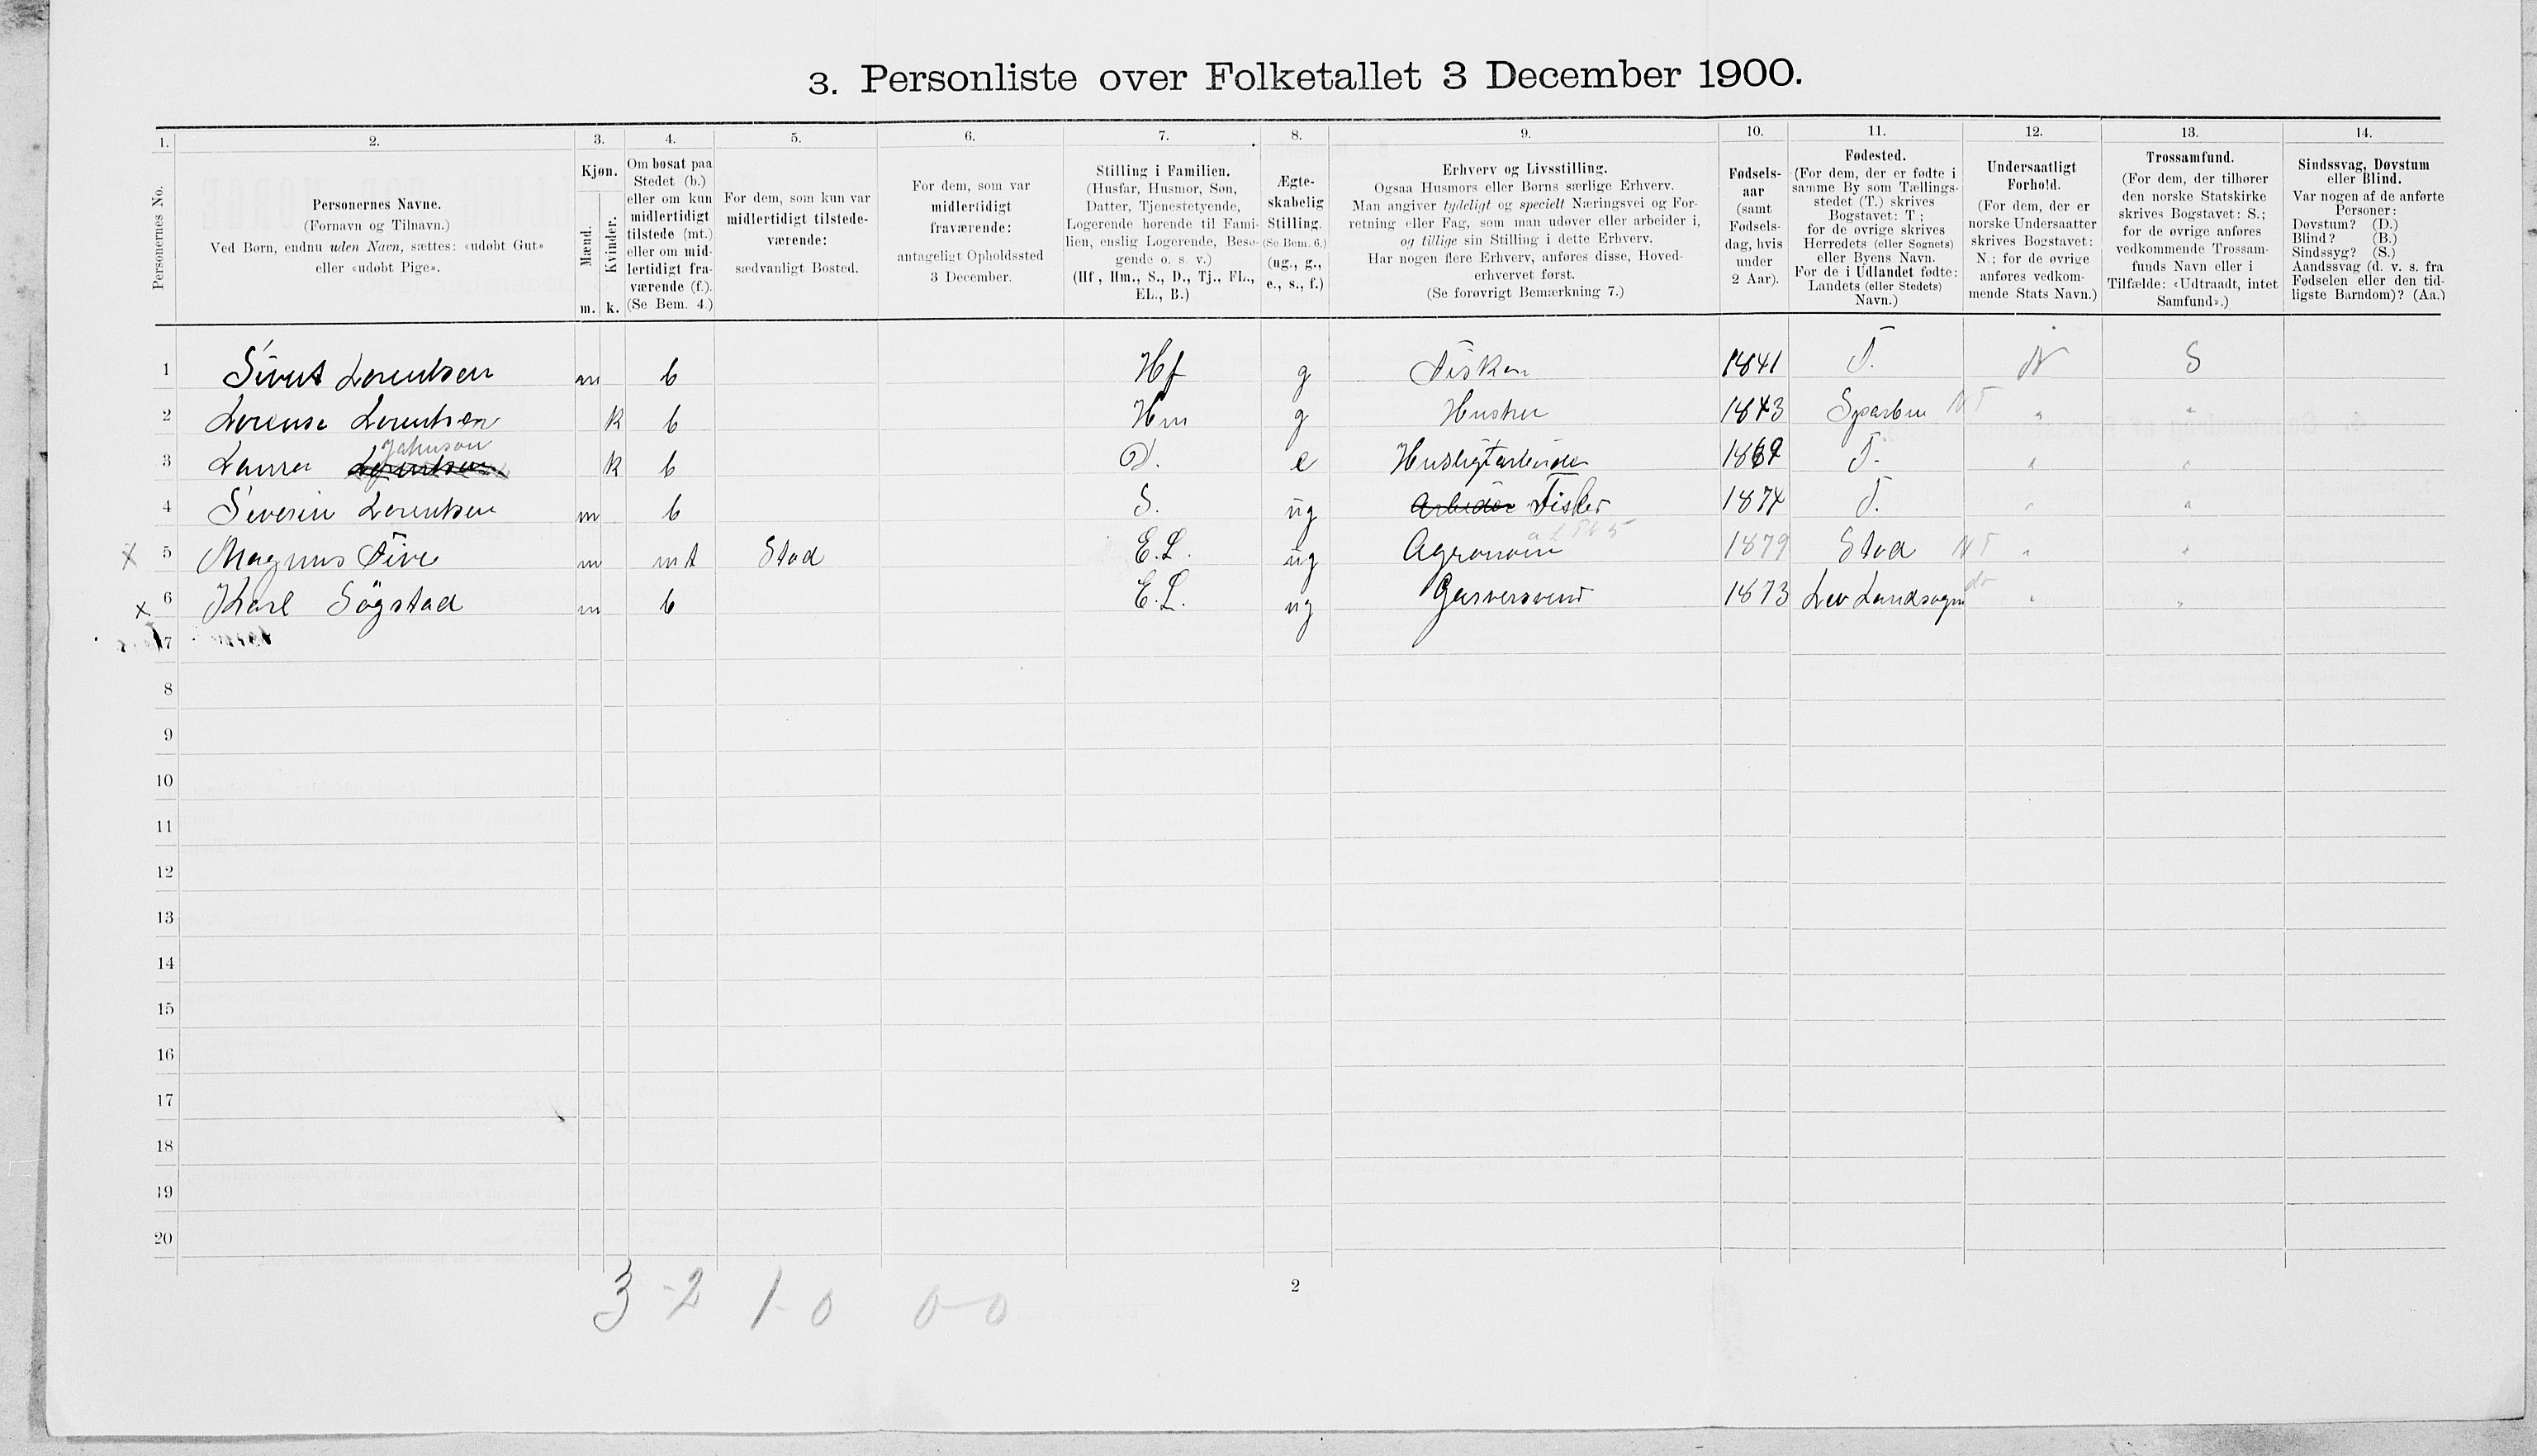 3. Personliste over Folketallet 3 December 1900.
1. 2. 3. 4. 5. 6. 7. 8. 9. 10. 11. 12. 13. 14.
Personernes No.
Personernes Navne.
(Fornavn og Tilnavn.)
Ved Børn, endnu uden Navn, sættes: «udøbt Gut»
eller «udøbt Pige».
Kjøn.
Mænd.
Kvinder.
m. k.
Om bosat paa
Stedet (b.)
eller om kun
midlertidigt
tilstede (mt.)
eller om mid-
lertidigt fra-
værende (f.).
(Se Bem. 4.)
For dem, som kun var
midlertidigt tilstede-
værende:
sædvanligt Bosted.
For dem, som var
midlertidigt
fraværende:
antageligt Opholdssted
3 December.
Stilling i Familien.
(Husfar, Husmor, Søn,
Datter, Tjenestetyende,
Logerende hørende til Fami-
lien, enslig Logerende, Besø-
gende o. s. v.)
(Hf, Hm., S., D., Tj., FL.,
EL., B.)
Ægte-
skabelig
Stilling.
(Se Bem. 6.)
(ug., g.,
e., s., f.)
Erhverv og Livsstilling.
Ogsaa Husmors eller Børns særlige Erhverv.
Man angiver tydeligt og specielt Næringsvei og For-
retning eller Fag, som man udøver eller arbeider i,
og tillige sin Stilling i dette Erhverv.
Har nogen flere Erhverv, anføres disse, Hoved-
erhvervet først.
(Se forøvrigt Bemærkning 7.)
Fødsels-
aar
(samt
Fødsels-
dag, hvis
under
2 Aar).
Fødested.
(For dem, der er fødte i
samme By som Tællings-
stedet (T.) skrives
Bogstavet: T;
for de øvrige skrives
Herredets (eller Sognets)
eller Byens Navn.
For de i Udlandet fødte:
Landets (eller Stedets)
Navn.)
Undersaatligt
Forhold.
(For dem, der er
norske Undersaatter
skrives Bogstavet:
N.; for de øvrige
anføres vedkom-
mende Stats Navn.)
Trossamfund.
(For dem, der tilhører
den norske Statskirke
skrives Bogstavet: S.;
for de øvrige anføres
vedkommende Trossam-
funds Navn eller i
Tilfælde: «Udtraadt, intet
Samfund».)
Sindssvag, Døvstum
eller Blind.
Var nogen af de anførte
Personer:
Døvstum? (D.)
Blind? (B.)
Sindssyg? (S.)
Aandssvag (d. v. s. fra
Fødselen eller den tid-
ligste Barndom)? (Aa.)
1 Sivert Lorentsen m b Hf g Fisker 1841 T. N S
2 Lorense Lorentsen k b Hm g Hustru 1843 Sparbu NT " "
Johnson
3 Laura Lorentsen k b D. e Husligtarbeide 1869 T. " "
4 Severin Lorentsen m b S. ug Arbeider Fisker 1874 T. " "
x 5 Magnus Five m mt Stod E.L. ug Agronom 1879 Stod NT " "
x 6 Karl Sögstad m b E.L. ug Garversvend 1873 Lev Landsogn do " "
7
8
9
10
11
12
13
14
15
16
17
18
19
20
2
3 - 2 1 - 0 0 - 0